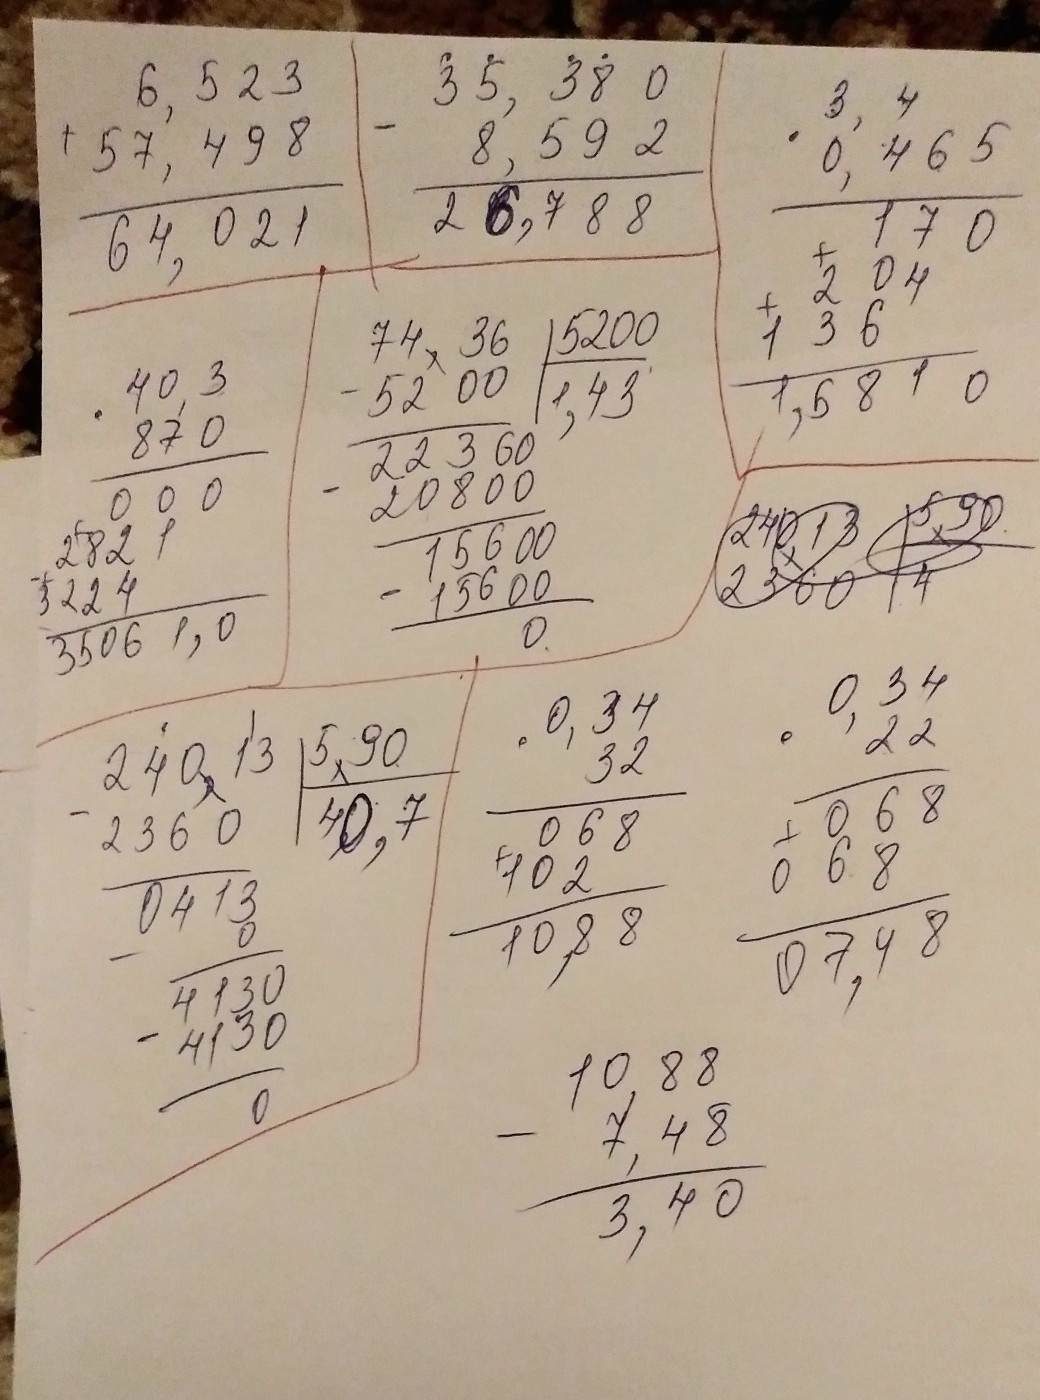 6,523
+ 57,498
64,021
35,380
- 8,592
26,788
3,4
· 0,465
170
+ 204
+ 136
1,5810
40,3
· 870
000
2821
+ 3224
35061,0
74,36 | 5200
- 5200 | 1,43
22360
- 20800
15600
- 15600
0.
240,13 | 5,90
- 2360 | 40,7
0413
- 0
4130
- 4130
0
0,34
· 32
068
+ 102
10,88
0,34
· 22
+ 068
068
07,48
10,88
- 7,48
3,40